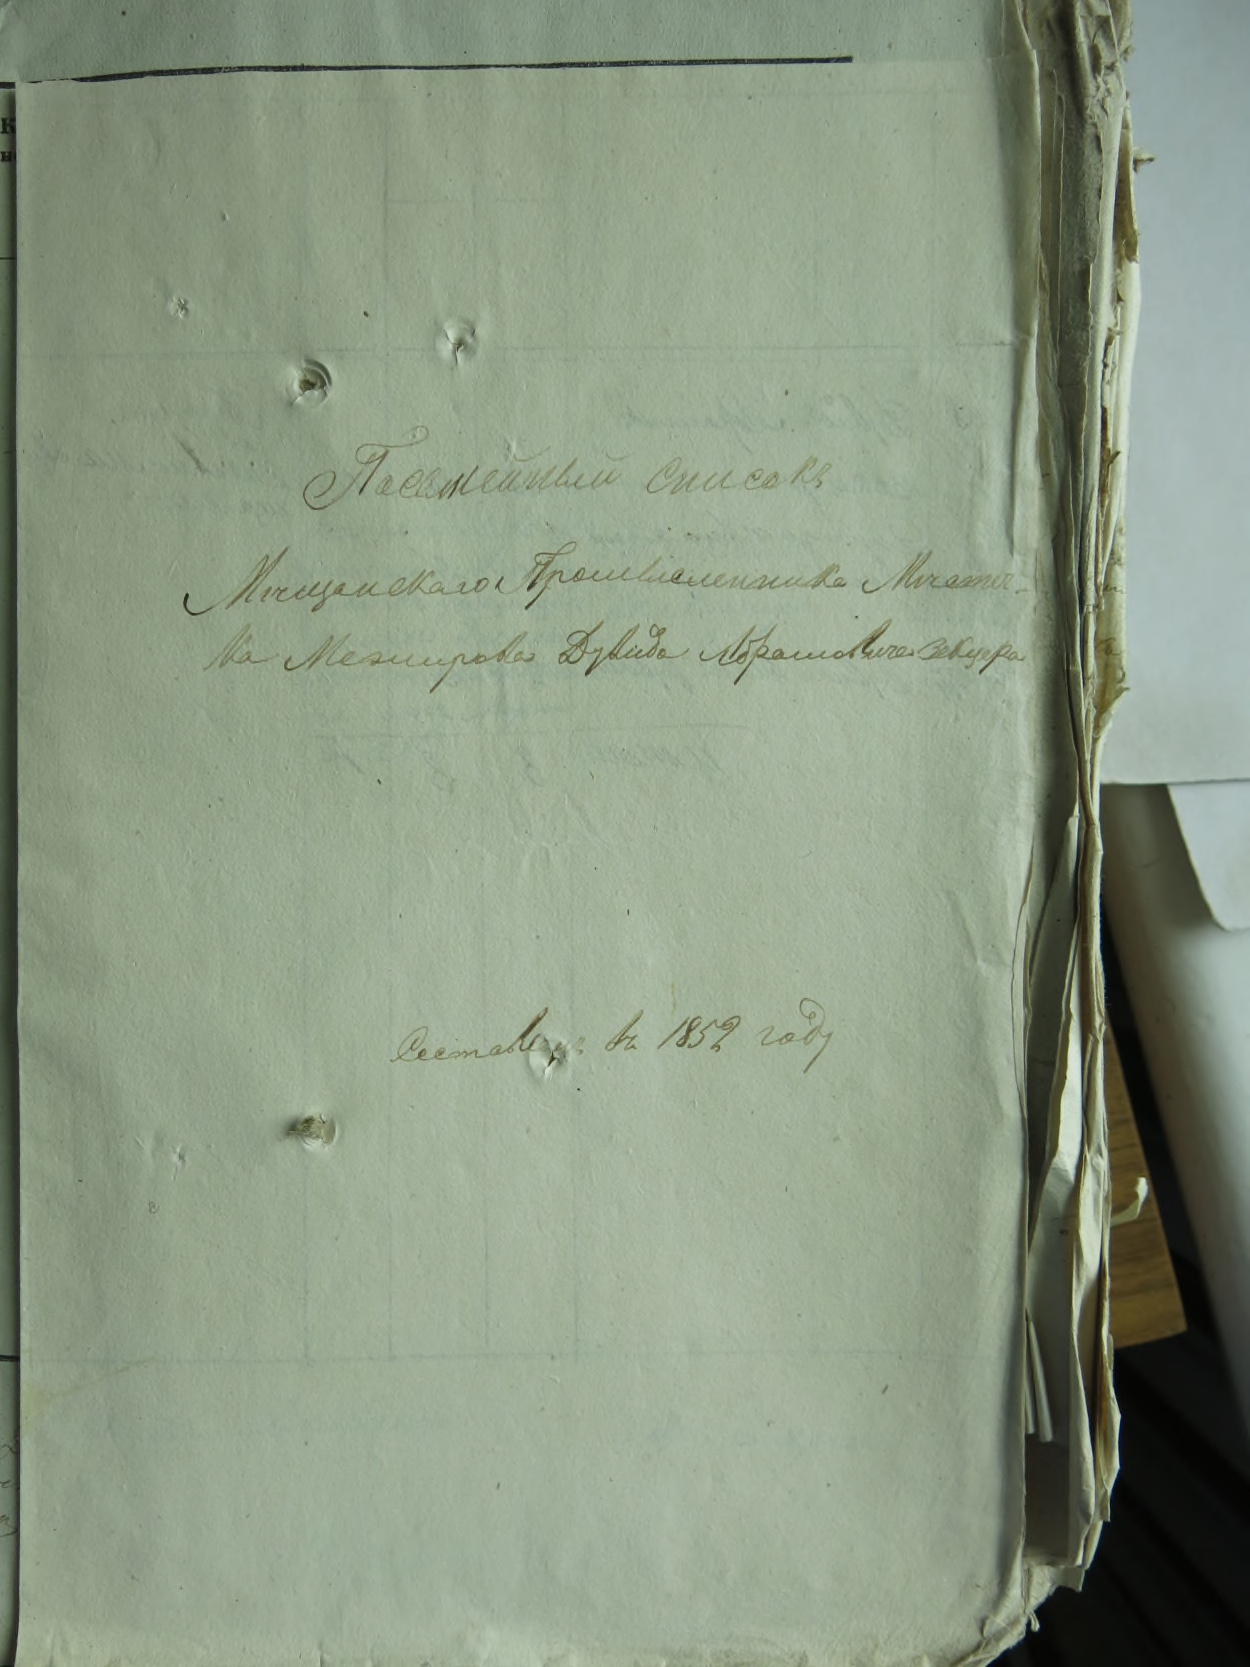 Посемейный списокъ
Мещанскаго Промышленника Местеч-
ка Межирова Дувида Абрамовича Зекцера
Составленъ въ 1852 году